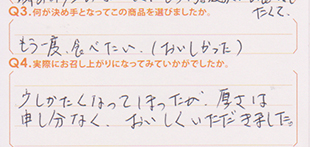 たくて、
Q3.何が決め手となってこの商品を選びましたか。
もう一度、食べたい。(おいしかった)
Q4.実際にお召し上がりになってみていかがでしたか。
少しかたくなってしまったが、厚さは
申し分なく、おいしくいただきました。